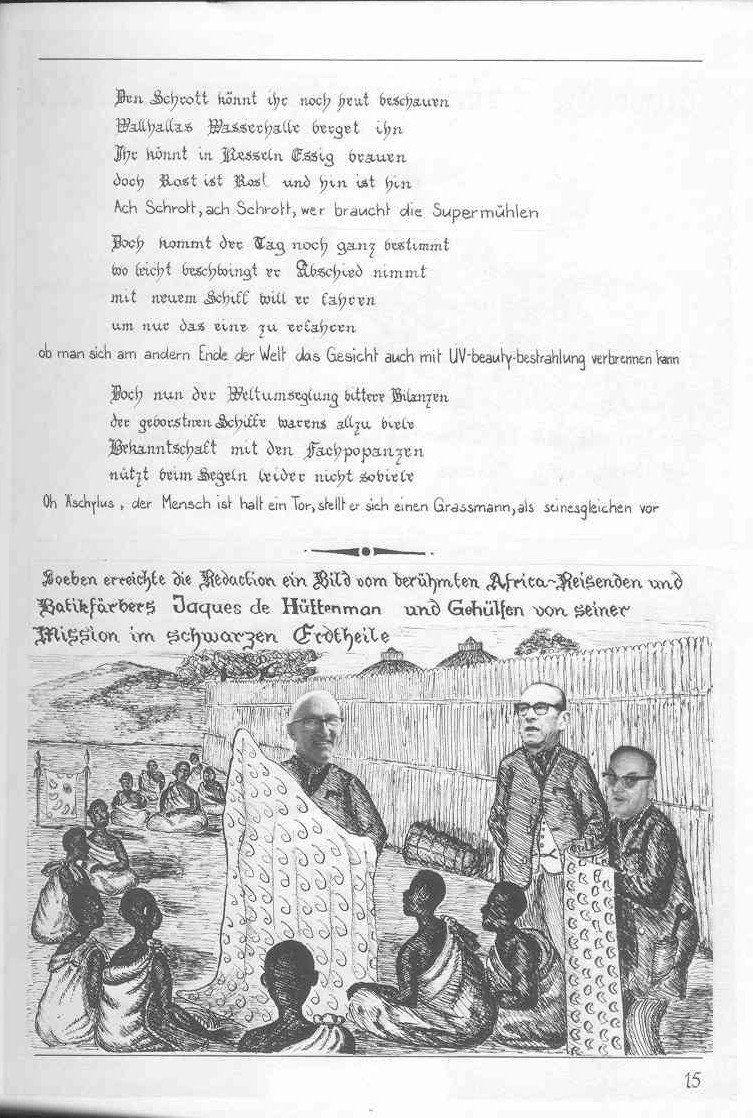 Den Schrott könnt ihr noch heut beschauen
Wallhallas Wasserhalle berget ihn
Ihr könnt in Kesseln Essig brauen
doch Rost ist Rost und hin ist hin
Ach Schrott, ach Schrott, wer braucht die Supermühlen
Doch kommt der Tag noch ganz bestimmt
wo leicht beschwingt er Abschied nimmt
mit neuem Schiff will er fahren
um nur das eine zu erfahren
ob man sich am andern Ende der Welt das Gesicht auch mit UV-beauty-bestrahlung verbrennen kann
Doch nun der Weltumseglung bittere Bilanzen
der geborstnen Schiffe warens allzu viele
Bekanntschaft mit den Fachpopanzen
nützt beim Segeln leider nicht soviele
Oh Äschylus, der Mensch ist halt ein Tor, stellt er sich einen Grassmann, als seinesgleichen vor
Soeben erreichte die Redaction ein Bild vom berühmten Africa-Reisenden und
Batikfärbers Jaques de Hüttenman und Gehülfen von seiner
Mission im schwarzen Erdtheile
15